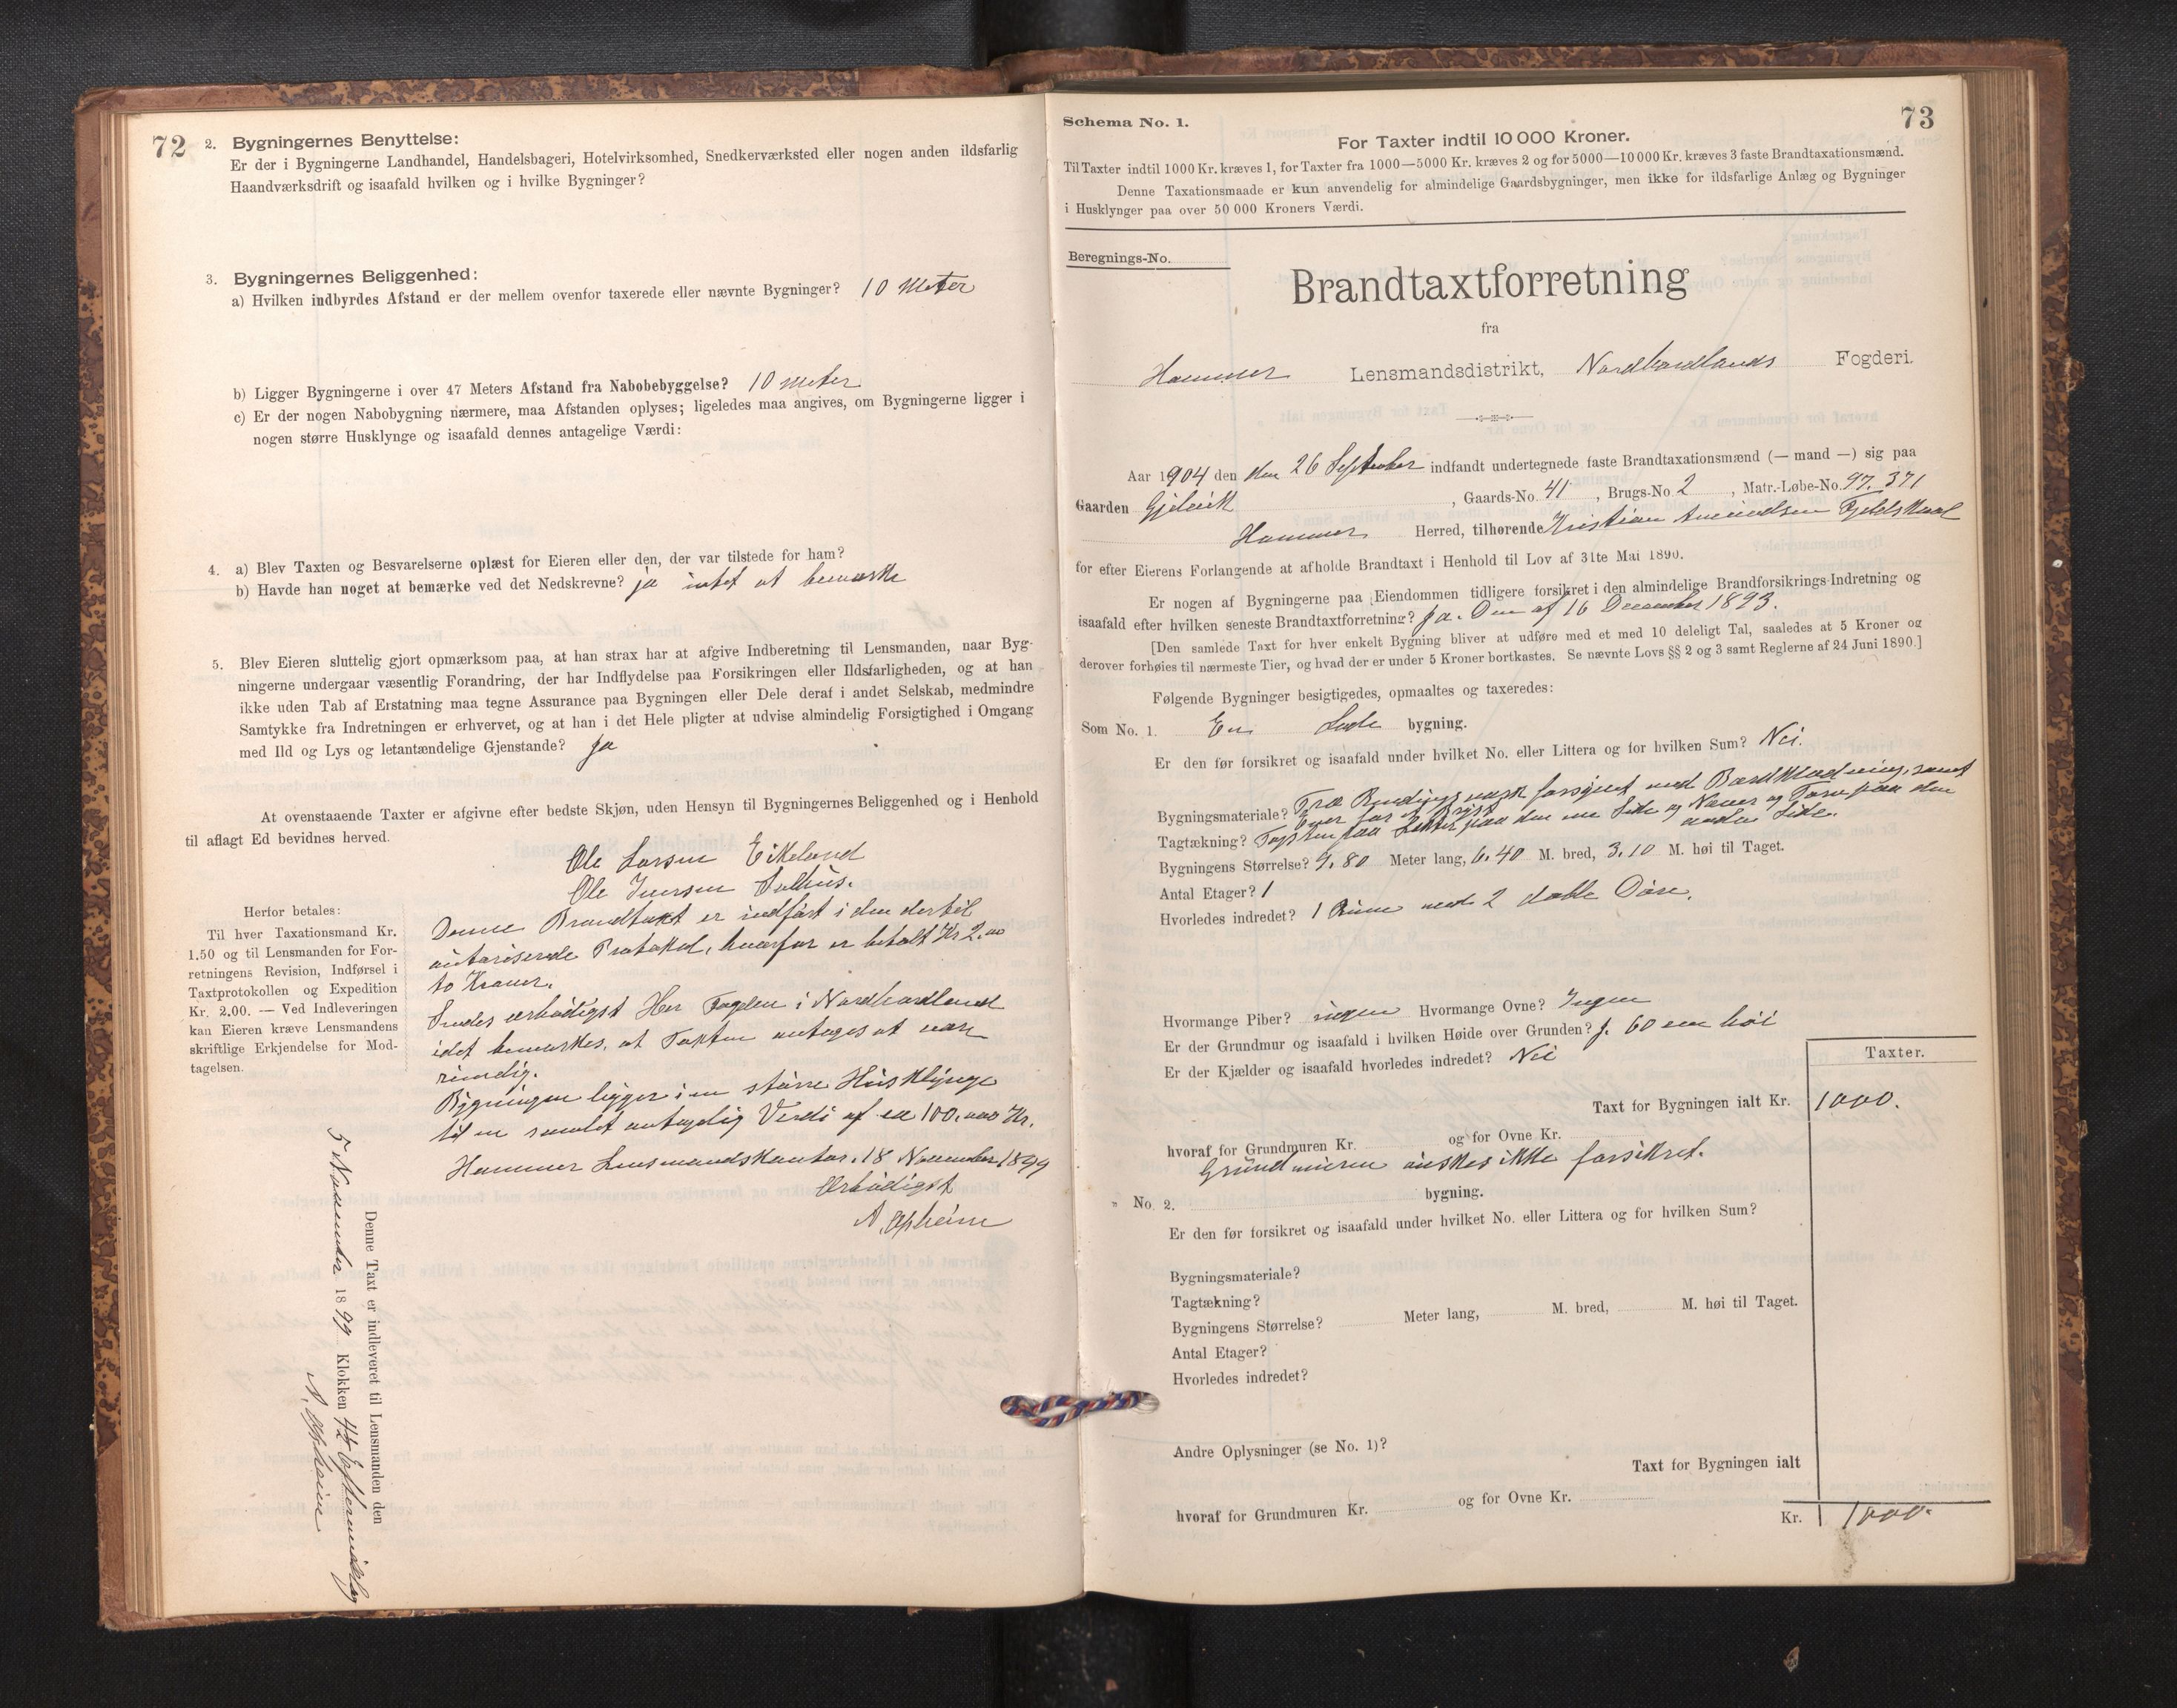 72
2. Bygningernes Benyttelse:
Er der i Bygningerne Landhandel, Handelsbageri, Hotelvirksomhed, Snedkerværksted eller nogen anden ildsfarlig
Haandværksdrift og isaafald hvilken og i hvilke Bygninger?
3. Bygningernes Beliggenhed:
a) Hvilken indbyrdes Afstand er der mellem ovenfor taxerede eller nævnte Bygninger? 10 Meter
b) Ligger Bygningerne i over 47 Meters Afstand fra Nabobebyggelse? 10 Meter
c) Er der nogen Nabobygning nærmere, maa Afstanden oplyses; ligeledes maa angives, om Bygningerne ligger i
nogen større Husklynge og isaafald dennes antagelige Værdi:
4. a) Blev Taxten og Besvarelserne oplæst for Eieren eller den, der var tilstede for ham?
b) Havde han noget at bemærke ved det Nedskrevne? ja intet at bemærke
5. Blev Eieren sluttelig gjort opmærksom paa, at han strax har at afgive Indberetning til Lensmanden, naar Byg-
ningerne undergaar væsentlig Forandring, der har Indflydelse paa Forsikringen eller Ildsfarligheden, og at han
ikke uden Tab af Erstatning maa tegne Assurance paa Bygningen eller Dele deraf i andet Selskab, medmindre
Samtykke fra Indretningen er erhvervet, og at han i det Hele pligter at udvise almindelig Forsigtighed i Omgang
med Ild og Lys og letantændelige Gjenstande? Ja
At ovenstaaende Taxter er afgivne efter bedste Skjøn, uden Hensyn til Bygningernes Beliggenhed og i Henhold
til aflagt Ed bevidnes herved.
Ole Larsen Eikeland
Ole Iversen Solhus.
Herfor betales:
Til hver Taxationsmand Kr.
1.50 og til Lensmanden for For-
retningens Revision, Indførsel i
Taxtprotokollen og Expedition
Kr. 2.00. — Ved Indleveringen
kan Eieren kræve Lensmandens
skriftlige Erkjendelse for Mod-
tagelsen.
Denne Brandtaxt er indført i den dertil
autoriserede Protokol, hvorfor er betalt Kr 2.00
to Kroner.
Sendes ærbødigst Her Fogden i Nordhordland
idet bemærkes, at Taxten antages at være
rimelig.
Bygningen ligger i en større Husklynge
til en samlet antagelig Verdi af ca 100.000 Kr.
Hammer Lensmandskontor, 18 November 1899
Ærbødigst
A. Opheim
Denne Taxt er indleveret til Lensmanden den
5 November 1899 Klokken 4½ Eftermiddag
A. Opheim
73
Schema No. 1.
For Taxter indtil 10 000 Kroner.
Til Taxter indtil 1000 Kr. kræves 1, for Taxter fra 1000—5000 Kr. kræves 2 og for 5000—10 000 Kr. kræves 3 faste Brandtaxationsmænd.
Denne Taxationsmaade er kun anvendelig for almindelige Gaardsbygninger, men ikke for ildsfarlige Anlæg og Bygninger
i Husklynger paa over 50 000 Kroners Værdi.
Beregnings-No.
Brandtaxtforretning
fra
Hammer Lensmandsdistrikt, Nordhordlands Fogderi.
Aar 1904 den den 26 September indfandt undertegnede faste Brandtaxationsmænd (— mand —) sig paa
Gaarden Gjelvik, Gaards-No. 41, Brugs-No 2, Matr.-Løbe-No. 97. 371
Hammer Herred, tilhørende Kristian Amundsen Fjeldskaal
for efter Eierens Forlangende at afholde Brandtaxt i Henhold til Lov af 31te Mai 1890.
Er nogen af Bygningerne paa Eiendommen tidligere forsikret i den almindelige Brandforsikrings-Indretning og
isaafald efter hvilken seneste Brandtaxtforretning? Ja. Den af 16 December 1893.
[Den samlede Taxt for hver enkelt Bygning bliver at udføre med et med 10 deleligt Tal, saaledes at 5 Kroner og
derover forhøies til nærmeste Tier, og hvad der er under 5 Kroner bortkastes. Se nævnte Lovs §§ 2 og 3 samt Reglerne af 24 Juni 1890.]
Følgende Bygninger besigtigedes, opmaaltes og taxeredes:
Som No. 1. En Lade bygning.
Er den før forsikret og isaafald under hvilket No. eller Littera og for hvilken Sum? Nei.
Bygningsmateriale? Træ Bindingsværk forsynet med Bordklædning, samt
Tagtækning? Tagsten paa Lekter paa den ene Side og Næver og Torv paa den
anden Side.
Bygningens Størrelse? 9.80 Meter lang, 6.40 M. bred, 3.10 M. høi til Taget.
Antal Etager? 1
Hvorledes indredet? 1 Rum med 2 doble Døre.
Hvormange Piber? ingen Hvormange Ovne? Ingen
Er der Grundmur og isaafald i hvilken Høide over Grunden? J. 60 cm høi
Er der Kjælder og isaafald hvorledes indredet? Nei
Taxter.
Taxt for Bygningen ialt Kr. 1000.
hvoraf for Grundmuren Kr. og for Ovne Kr.
Grundmuren ønskes ikke forsikret.
" No. 2. bygning.
Er den før forsikret og isaafald under hvilket No. eller Littera og for hvilken Sum?
Bygningsmateriale?
Tagtækning?
Bygningens Størrelse? Meter lang, M. bred, M. høi til Taget.
Antal Etager?
Hvorledes indredet?
Andre Oplysninger (se No. 1)?
Taxt for Bygningen ialt
hvoraf for Grundmuren Kr. og for Ovne Kr.
Kr. 1000.